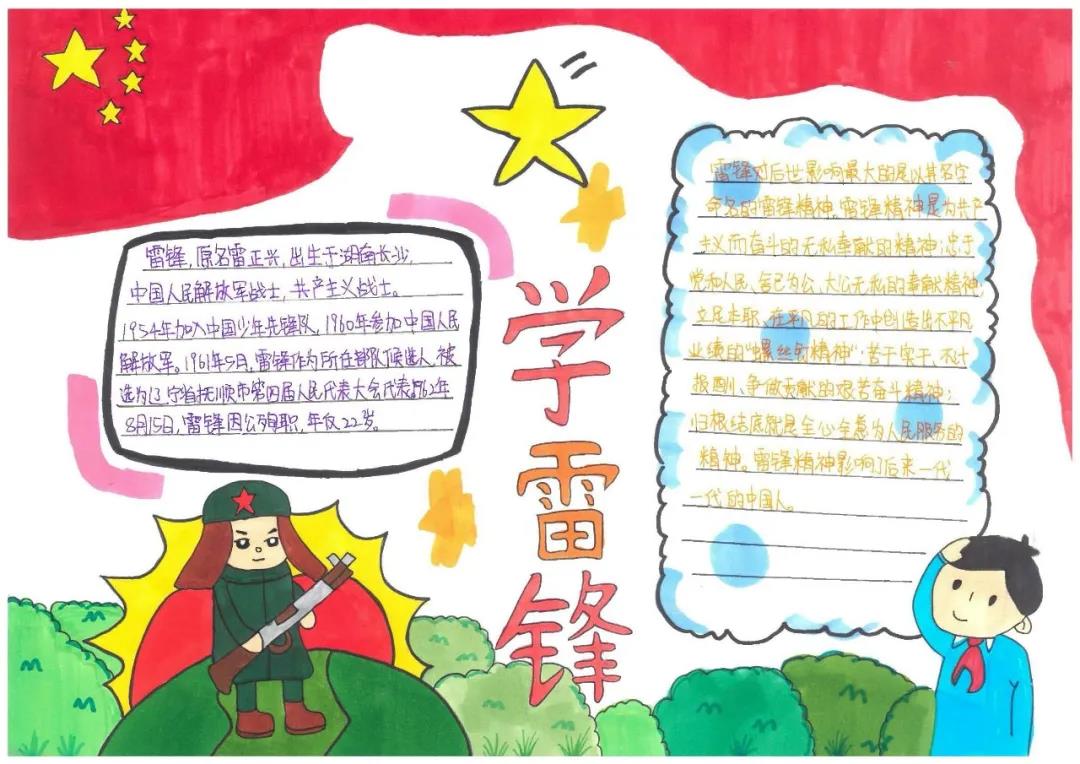 学雷锋
雷锋，原名雷正兴，出生于湖南长沙，
中国人民解放军战士，共产主义战士。
1954年加入中国少年先锋队，1960年参加中国人民
解放军。1961年5月，雷锋作为所在部队候选人，被
选为辽宁省抚顺市第四届人民代表大会代表。1962年
8月15日，雷锋因公殉职，年仅22岁。
雷锋对后世影响最大的是以其名字
命名的雷锋精神。雷锋精神是为共产
主义而奋斗的无私奉献的精神；忠于
党和人民、舍己为公、大公无私的奉献精神；
立足本职、在平凡的工作中创造出不平凡
业绩的“螺丝钉精神”；苦干实干、不计
报酬、争做贡献的艰苦奋斗精神；
归根结底就是全心全意为人民服务的
精神。雷锋精神影响了后来一代
一代的中国人。